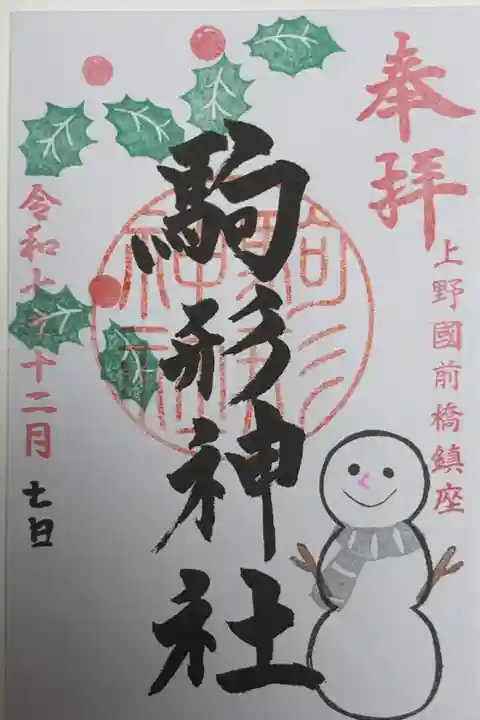 奉拝
上野國前橋鎮座
駒形神社
駒形神社
令和
年十二月
七日